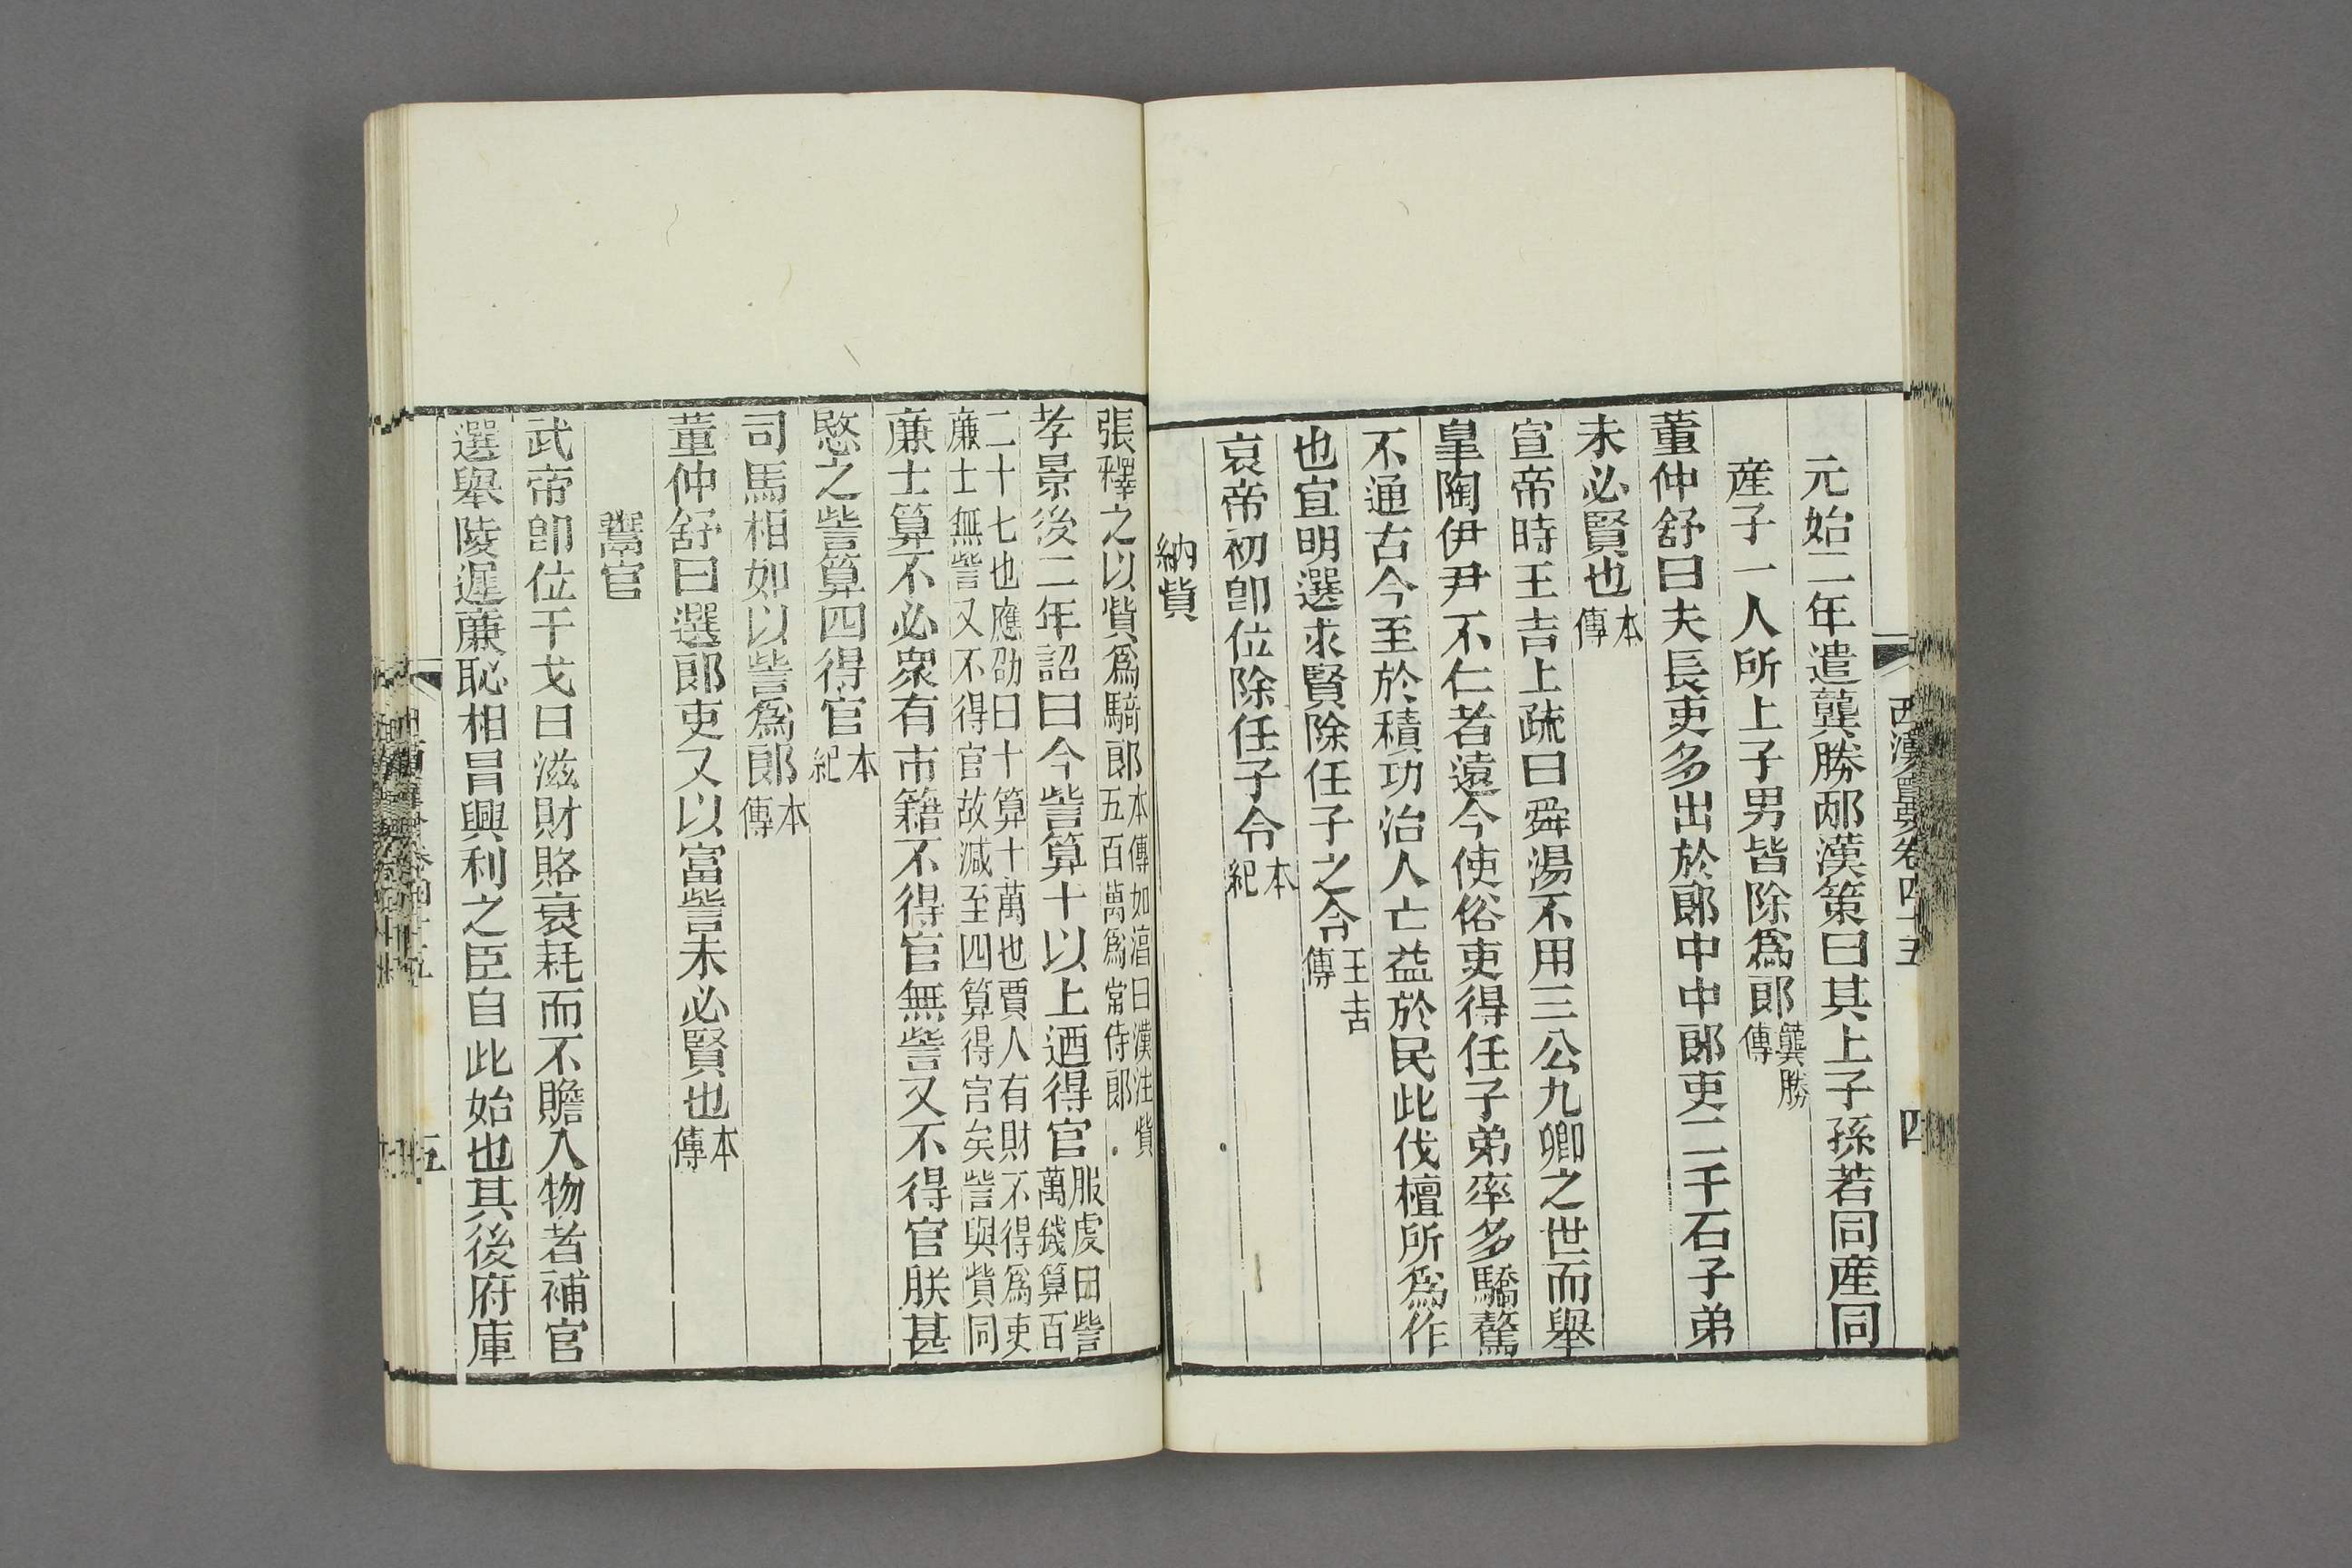 西漢會要卷四十五
四
元始二年遣龔勝邴漢策曰其上子孫若同産同
産子一人所上子男皆除爲郎龔勝傳
董仲舒曰夫長吏多出於郎中中郎吏二千石子弟
未必賢也本傳
宣帝時王吉上疏曰舜湯不用三公九卿之世而舉
皐陶伊尹不仁者遠今使俗吏得任子弟率多驕驁
不通古今至於積功治人亡益於民此伐檀所爲作
也宜明選求賢除任子之令王吉傳
哀帝初卽位除任子令本紀
納貲
張釋之以貲爲騎郎本傳如淳曰漢注貲五百萬爲常侍郎
孝景後二年詔曰今訾算十以上迺得官服虔曰訾萬錢算百
二十七也應劭曰十算十萬也賈人有財不得爲吏廉士無訾又不得官故減至四算得官矣訾與貲同
廉士算不必衆有市籍不得官無訾又不得官朕甚
愍之訾算四得官本紀
司馬相如以訾爲郎本傳
董仲舒曰選郎吏又以富訾未必賢也本傳
鬻官
武帝卽位干戈日滋財賂衰耗而不贍入物者補官
選舉陵遲廉恥相冒興利之臣自此始也其後府庫
五